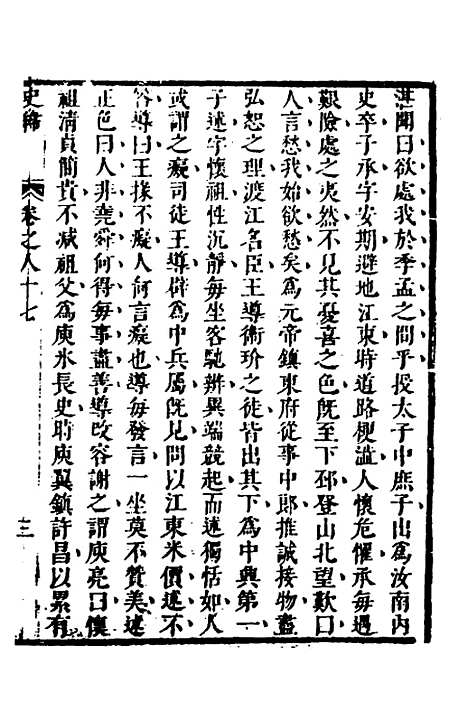 湛聞曰欲處我於季孟之間乎授太子中庶子出爲汝南內
史卒子承字安期避地江東時道路梗澁人懷危懼承每遇
艱險處之夷然不見其憂喜之色旣至下邳登山北望歎曰
人言愁我始欲愁矣爲元帝鎮東府從事中郎推誠接物盡
弘恕之理渡江名臣王導衛玠之徒皆出其下爲中興第一
子述字懷祖性沉靜每坐客馳辨異端競起而述獨恬如人
或謂之癡司徒王導辟爲中兵屬旣見問以江東米價述不
答導曰王掾不癡人何言癡也導每發言一坐莫不贊美述
正色曰人非堯舜何得每事盡善導改容謝之謂庾亮曰懷
祖清貞簡貴不减祖父爲庾氷長史時庾翼鎮許昌以累有
史緯
卷之八十七
三